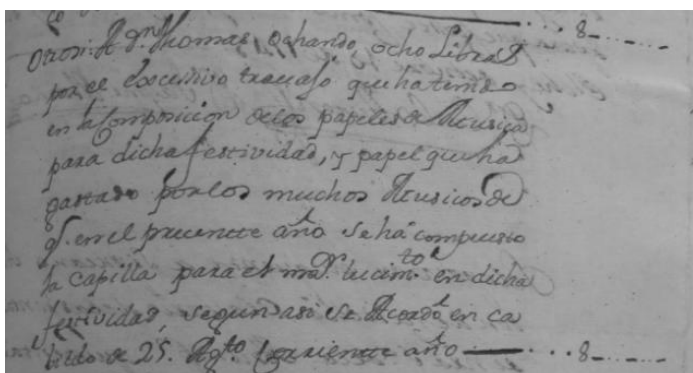 8
Otrosi: A Dn. Thomas, ochando, ocho Libras
por el excessivo travajo que ha tenido
en la Composicion de los papeles de Musica
para dicha festividad, y papel que ha
gastado por los muchos Musicos de
q. en el presente año se ha compuesto
la Capilla para el mar. lucimto. en dicha
festividad, segun asi se Acordo en ca
bildo de 25. Agto. Corriente año — . . . 8